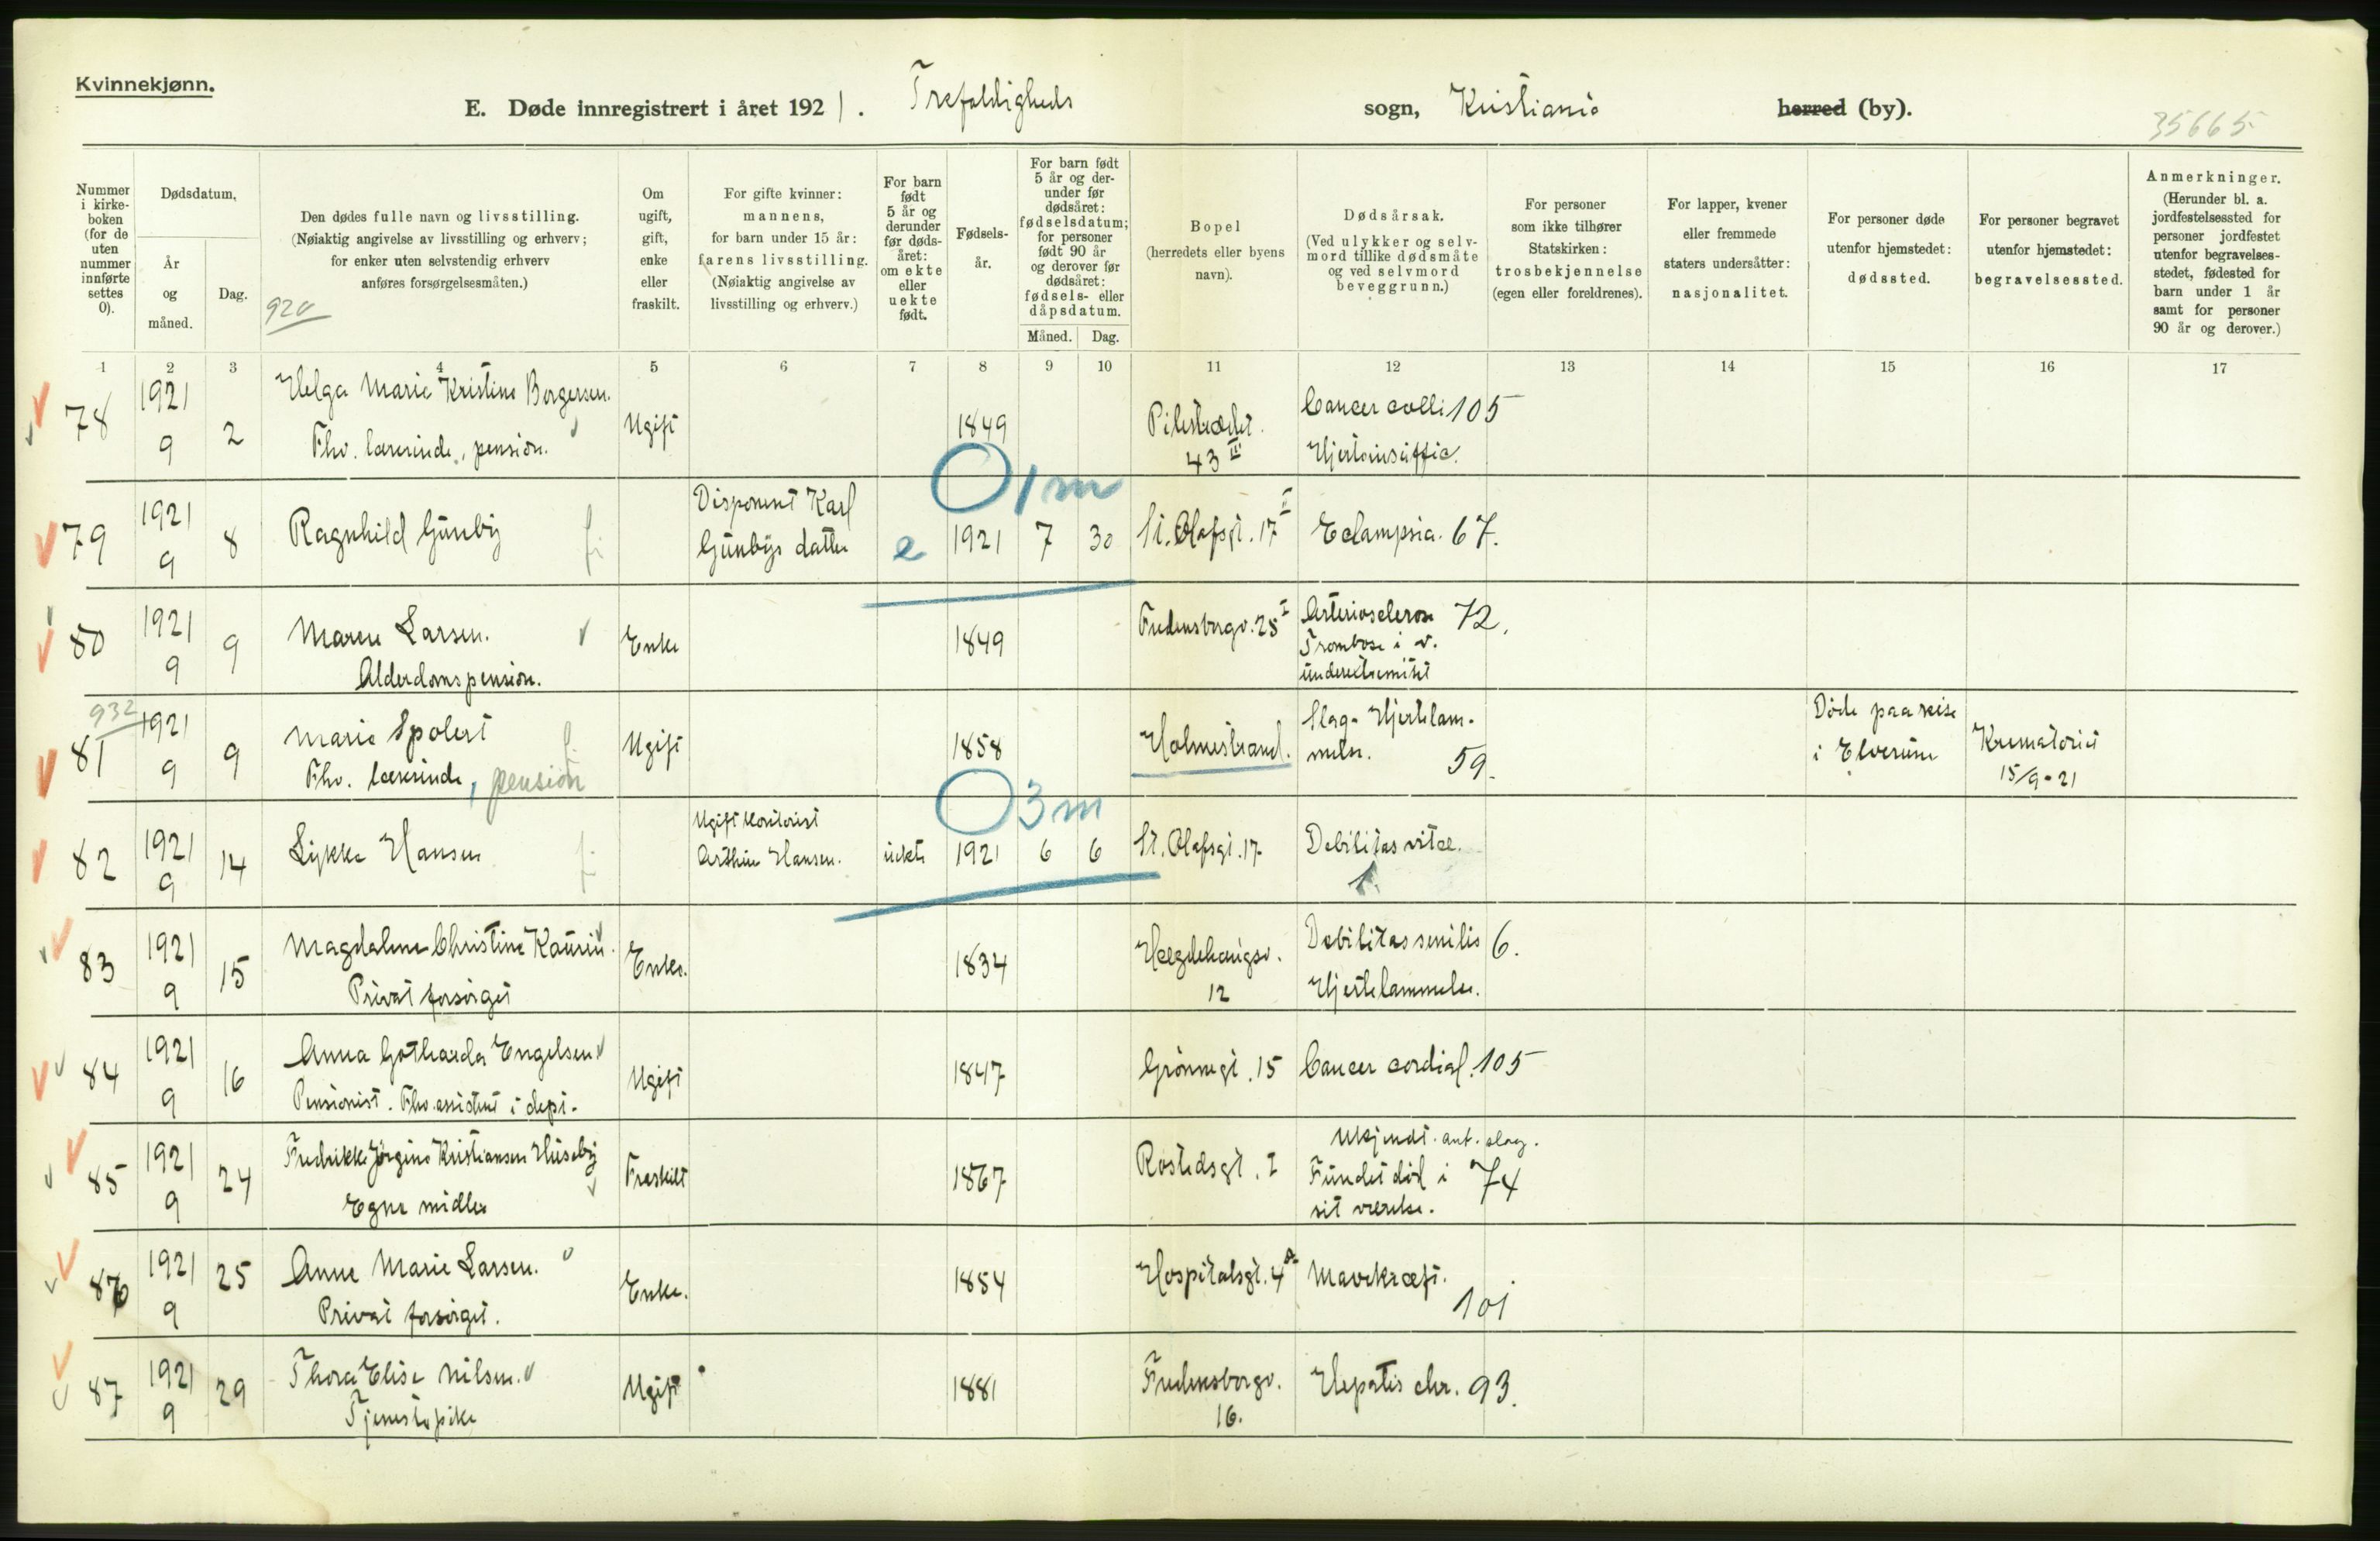 Kvinnekjønn.
E. Døde innregistrert i året 1921. Trefoldigheds sogn, Kristiania herred (by).
35665
Nummer i kirkeboken (for de uten nummer innførte settes 0).
Dødsdatum,
År og måned.
Dag.
Den dødes fulle navn og livsstilling.
(Nøiaktig angivelse av livsstilling og erhverv;
for enker uten selvstendig erhverv
anføres forsørgelsesmåten.)
920
Om ugift, gift, enke eller fraskilt.
For gifte kvinner:
mannens,
for barn under 15 år:
farens livsstilling.
(Nøiaktig angivelse av
livsstilling og erhverv.)
For barn født 5 år og derunder før dødsåret: om ekte eller uekte født.
Fødselsår.
For barn født 5 år og derunder før dødsåret: fødselsdatum; for personer født 90 år og derover før dødsåret: fødsels- eller dåpsdatum.
Måned. Dag.
Bopel
(herredets eller byens
navn).
Dødsårsak.
(Ved ulykker og selvmord tillike dødsmåte og ved selvmord beveggrunn.)
For personer
som ikke tilhører
Statskirken:
trosbekjennelse
(egen eller foreldrenes).
For lapper, kvener
eller fremmede
staters undersåtter:
nasjonalitet.
For personer døde
utenfor hjemstedet:
dødssted.
For personer begravet
utenfor hjemstedet:
begravelsessted.
Anmerkninger.
(Herunder bl. a.
jordfestelsessted for
personer jordfestet
utenfor begravelses-
stedet, fødested for
barn under 1 år
samt for personer
90 år og derover.)
1 2 3 4 5 6 7 8 9 10 11 12 13 14 15 16 17
78 1921 9 2 Helga Marie Kristine Borgersen.
Fhv. lærerinde, pension. Ugift 1849 Pilestrædet. 43 III Cancer colli 105
Hjerteinsuffic.
79 1921 9 8 Ragnhild Gunby Disponent Karl
Gunbys datter e 1921 7 30 St. Olafsgt. 17 I Eclampsia. 67.
01m
80 1921 9 9 Maren Larsen.
Alderdomspension. Enke 1849 Fredensborgv. 25 I Arteriosclerose 72.
Trombose i v.
underextremitet
932
81 1921 9 9 Marie Spolert
Fhv. lærerinde, pension Ugift 1858 Holmestrand. Slag - Hjertelam-
melse. 59.
Døde paa reise
i Elverum
Krematoriet
15/9-21
82 1921 9 14 Lykke Hansen Ugift kontorist
Arthur Hansen. uekte 1921 6 6 St. Olafsgt. 17 Debilitas vitæ.
1.
03m
83 1921 9 15 Magdalene Christine Kaurin.
Privat forsørget Enke. 1834 Hægdehaugsv. 12 Debilitas senilis 6.
Hjertelammelse.
84 1921 9 16 Anna Gotharda Engelsen
Pensionist. Fhv. assistent i dept. Ugift 1847 Grønnegt. 15 Cancer cordial. 105
85 1921 9 24 Fredrikke Jørgine Kristiansen Huseby
Egne midler Fraskilt 1867 Rostedsgt. I Ukjendt. ant. slag.
Fundet død i 74
sit værelse.
86 1921 9 25 Anne Marie Larsen.
Privat forsørget. Enke. 1854 Hospitalsgt. 4 A Mavekræft.
101
87 1921 9 29 Thora Elise Nilsen.
Tjenestepike Ugift 1881 Fredensborgv. 16. Hepatis chr. 93.